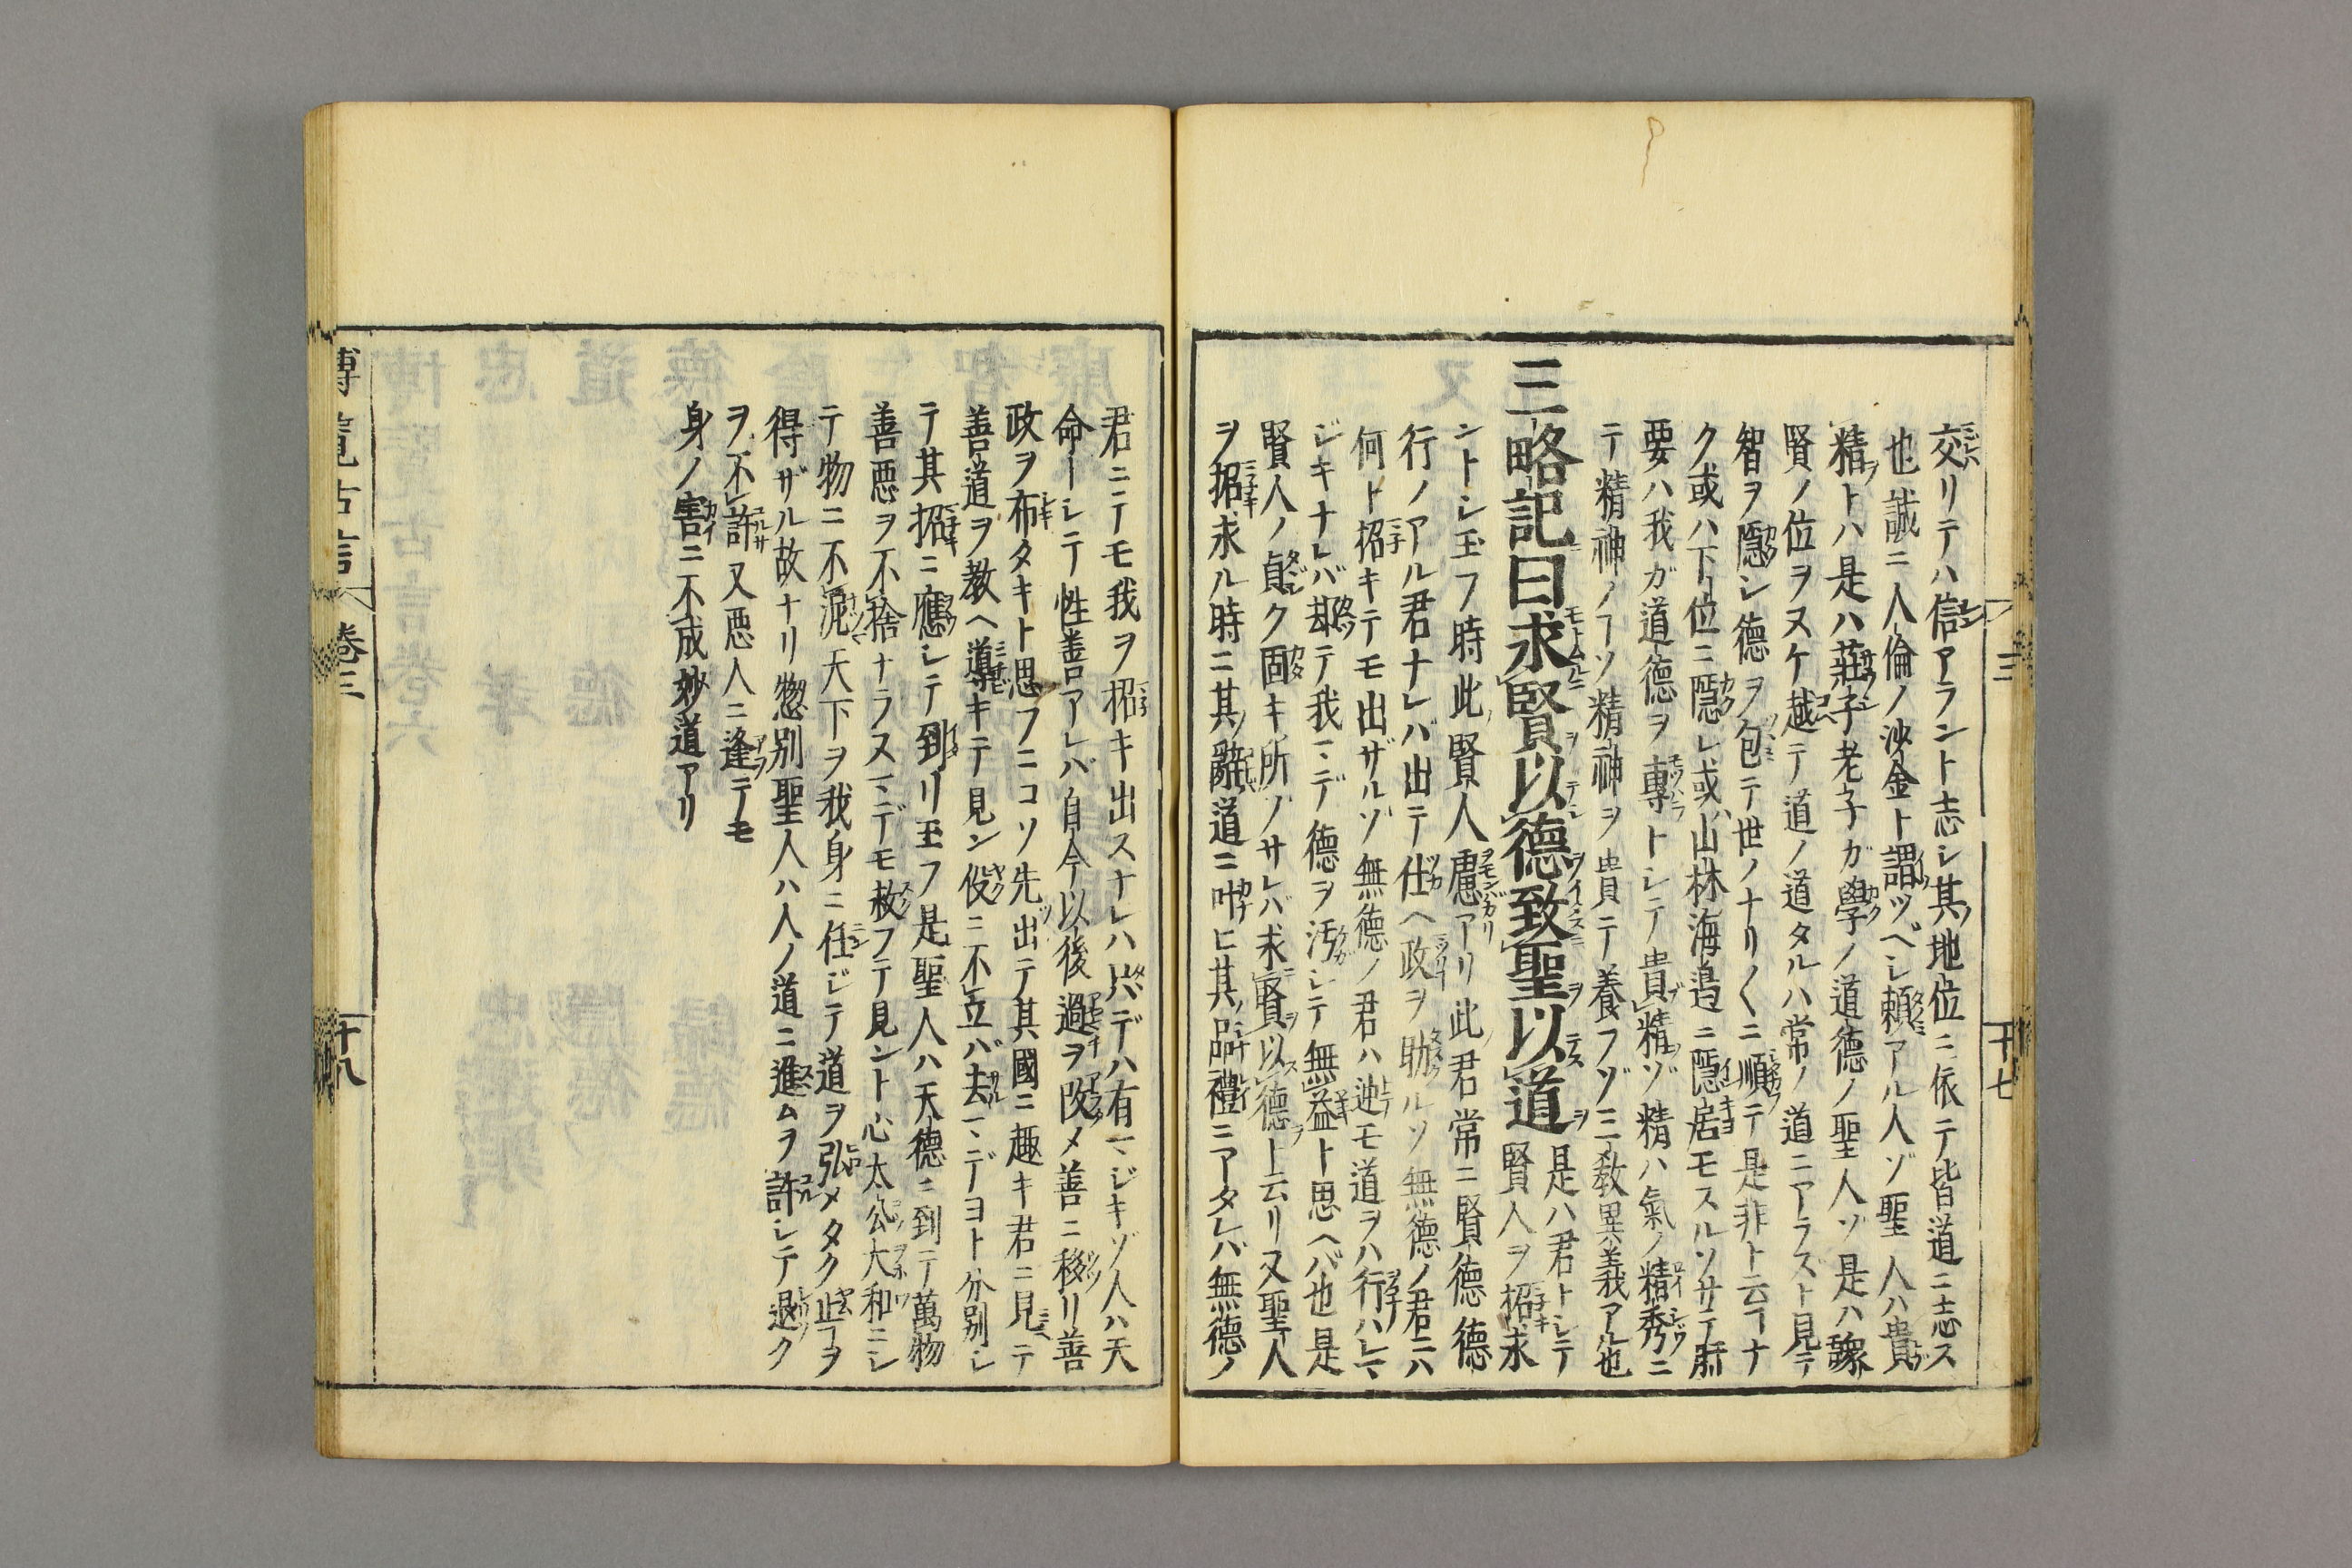 交リテハ信アラント志シ其ノ地位ニ依テ皆道ニ志ス
也誠ニ人倫ノ沙金ト謂ツベシ頼アル人ゾ聖人ハ貴
精トハ是ハ莊子老子ガ學ノ道德ノ聖人ゾ是ハ豫
賢ノ位ヲヌケ越テ道ノ道タルハ常ノ道ニアラズト見テ
智ヲ隱シ德ヲ包テ世ノナリ〱ニ順テ是非ト云ヿナ
ク或ハ下位ニ隱レ或ハ山林海邉ニ隱居モスルソサテ肝
要ハ我ガ道德ヲ專トシテ貴精ゾ精ハ氣ノ精秀ニ
テ精神ノヿソ精神ヲ貴テ養フゾ三敎異義アル也
三略記曰求賢以德致聖以道 是ハ君トシテ
賢人ヲ招求
ントシ玉フ時此賢人慮アリ此君常ニ賢德德
行ノアル君ナレバ出テ仕ヘ政ヲ助ルソ無德ノ君ニハ
何ト招キテモ出ザルゾ無德ノ君ハ迚モ道ヲハ行ハレマ
ジキナレバ却テ我マデ德ヲ汚シテ無益ト思ヘバ也是
賢人ノ貞ク固キ所ノサレバ求賢以德ト云リ又聖人
ヲ招求ル時ニ其ノ辭道ニ叶ヒ其ノ品禮ニアタレバ無德ノ
君ニテモ我ヲ招キ出スナレハ只ハデハ有マジキゾ人ハ天
命ーシテ性善アレバ自今以後過ヲ改メ善ニ移リ善
政ヲ布タキト思フニコソ先出テ其國ニ趣キ君ニ見テ
善道ヲ教ヘ導キテ見ン役ニ不立バ去マデヨト分別シ
テ其招ニ應シテ到リ玉フ是聖人ハ天德ニ到テ萬物
善悪ヲ不捨ナラヌマデモ敎フテ見ント心太公大和ニシ
テ物ニ不泥天下ヲ我身ニ任ジテ道ヲ弘メタク止ヿヲ
得ザル故ナリ惣別聖人ハ人ノ道ニ進ムヲ許シテ退ク
ヲ不許又悪人ニ逢テモ
身ノ害ニ不成妙道アリ
博覽古言 卷三 十八
三 十七